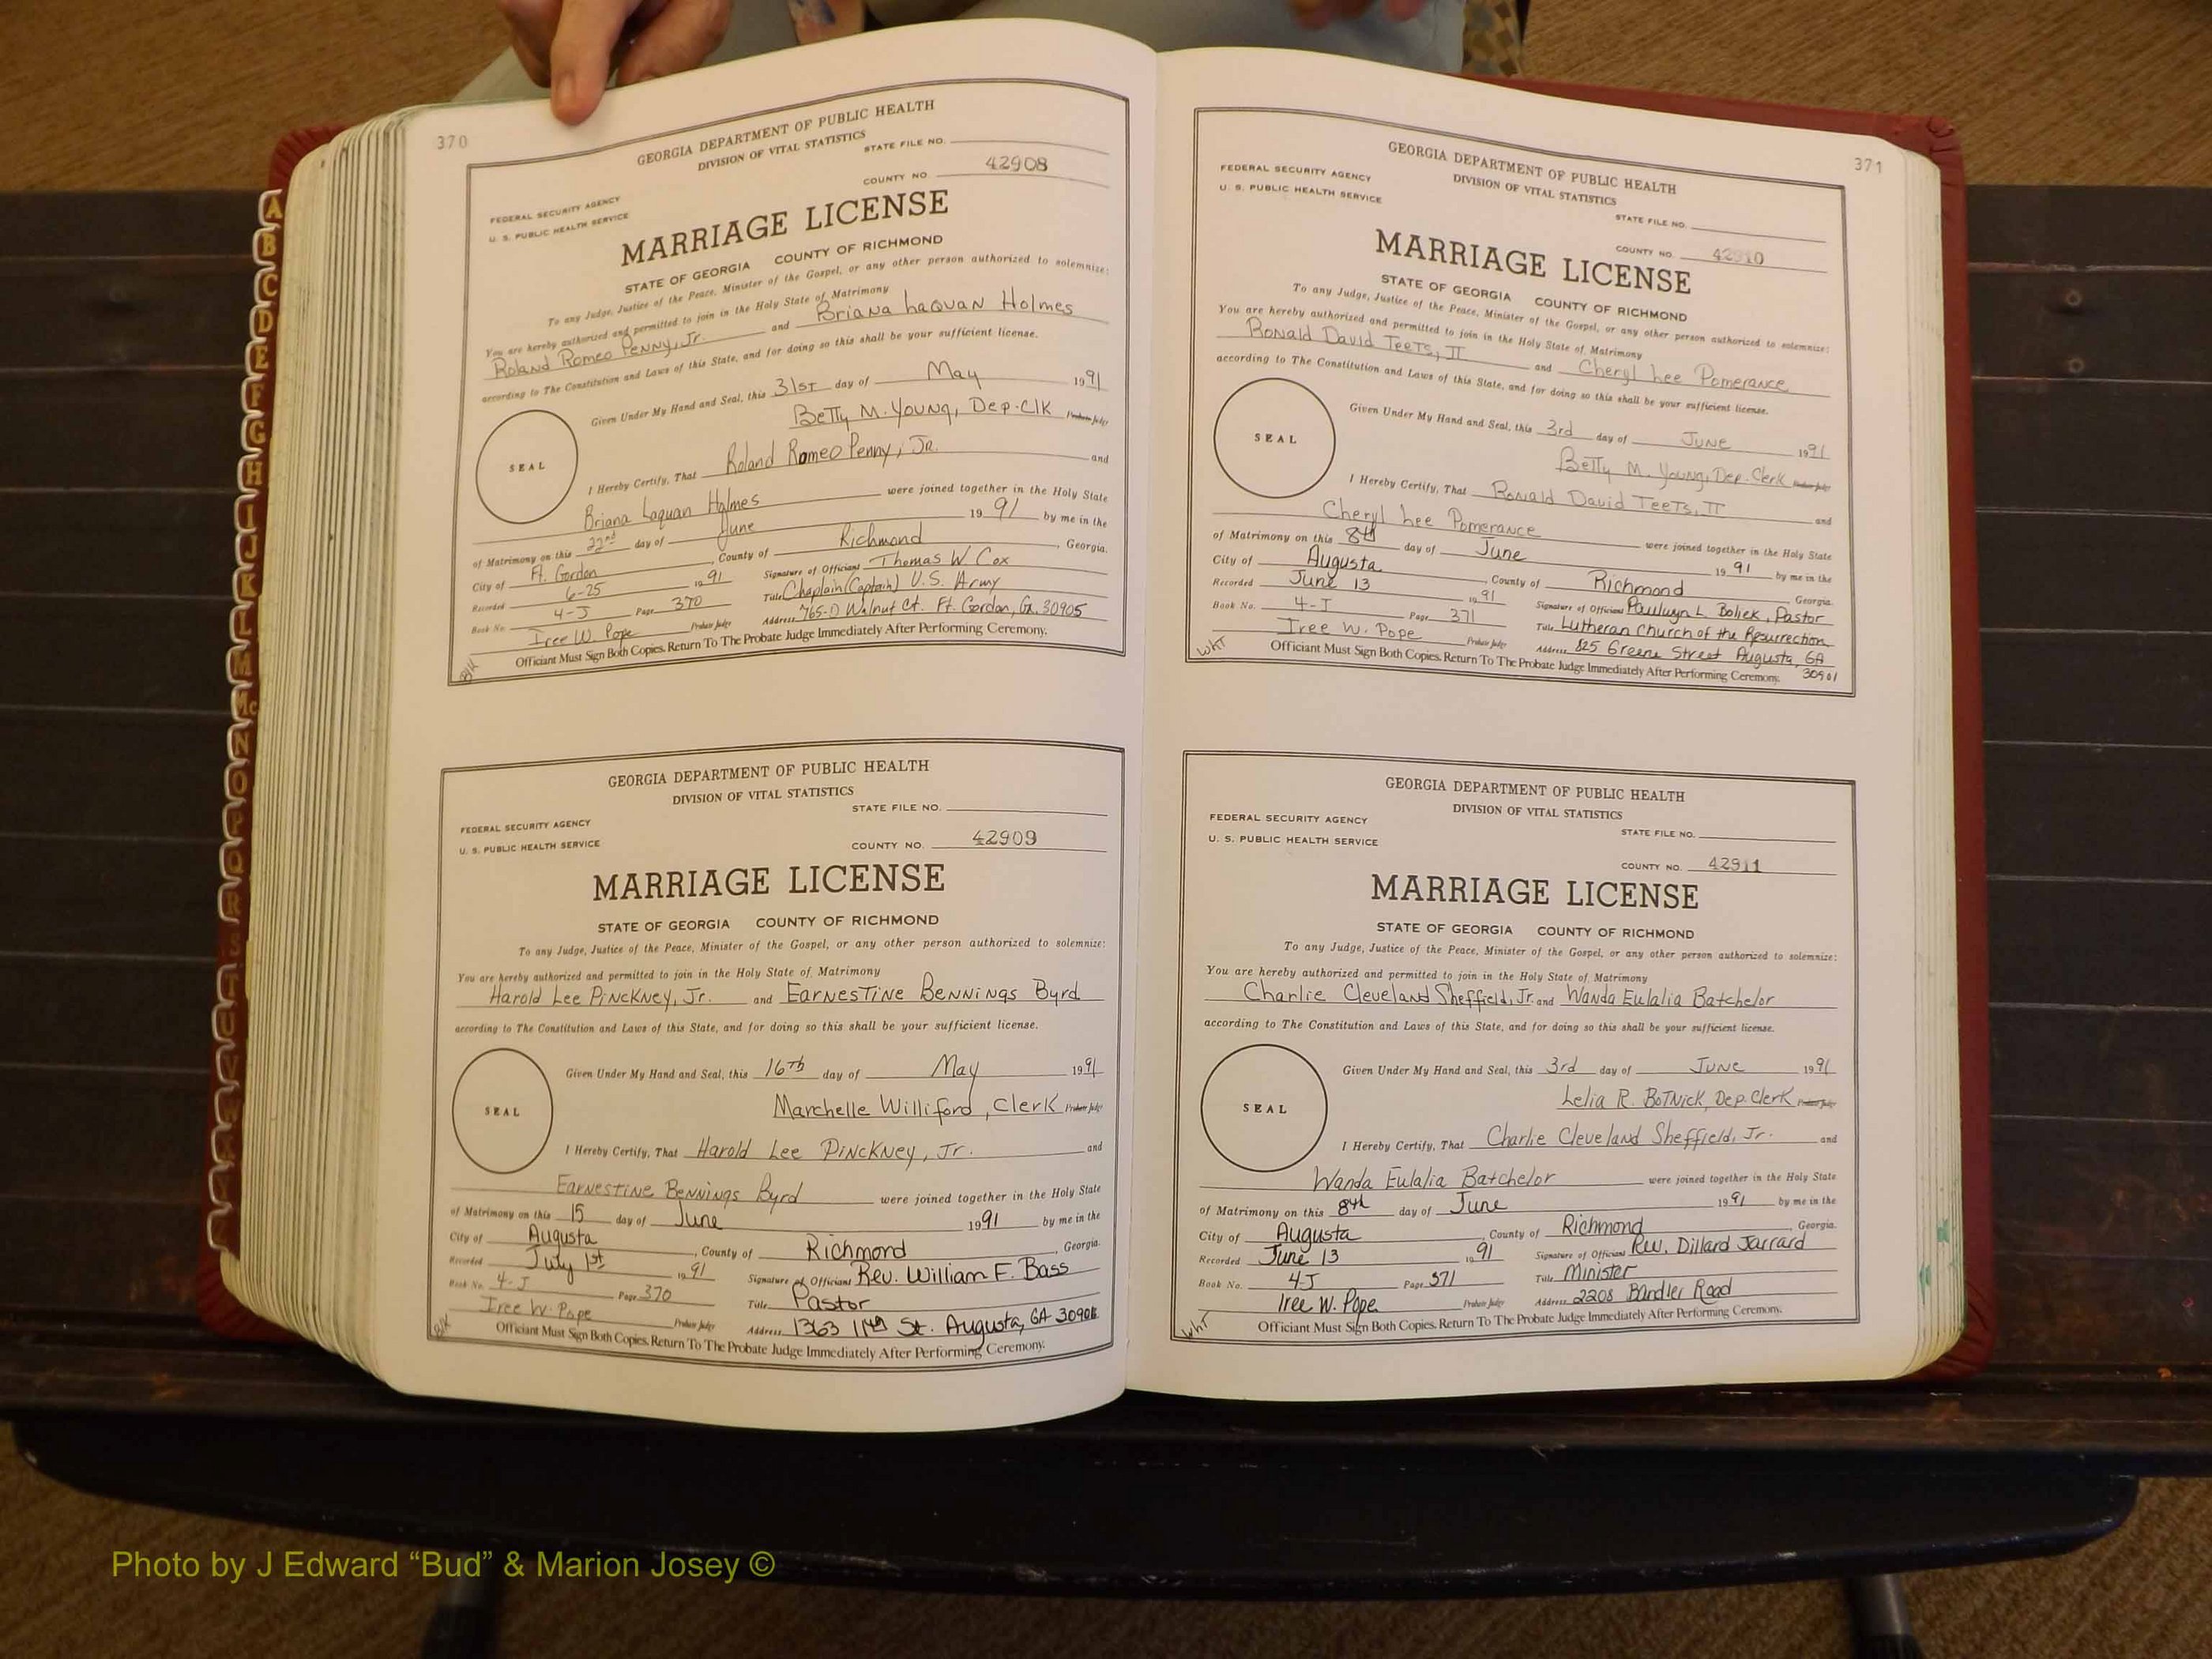 370
GEORGIA DEPARTMENT OF PUBLIC HEALTH
DIVISION OF VITAL STATISTICS
STATE FILE NO.
COUNTY NO. 42908
FEDERAL SECURITY AGENCY
U. S. PUBLIC HEALTH SERVICE
MARRIAGE LICENSE
STATE OF GEORGIA COUNTY OF RICHMOND
To any Judge, Justice of the Peace, Minister of the Gospel, or any other person authorized to solemnize:
You are hereby authorized and permitted to join in the Holy State of Matrimony
Roland Romeo Penny, Jr. and Briana LaQuan Holmes
according to The Constitution and Laws of this State, and for doing so this shall be your sufficient license.
Given Under My Hand and Seal, this 31st day of May 1991
Betty M. Young, Dep. Clk Probate Judge
SEAL
I Hereby Certify, That Roland Romeo Penny, Jr. and
Briana Laquan Holmes were joined together in the Holy State
of Matrimony on this 22nd day of June 1991 by me in the
City of Ft. Gordon, County of Richmond, Georgia.
Recorded 6-25 1991 Signature of Officiant Thomas W Cox
Book No. 4-J Page 370 Title Chaplain (Captain) U.S. Army
Iree W. Pope Probate Judge Address 765-D Walnut Ct. Ft. Gordon, Ga. 30905
Officiant Must Sign Both Copies. Return To The Probate Judge Immediately After Performing Ceremony.
Blk
GEORGIA DEPARTMENT OF PUBLIC HEALTH
DIVISION OF VITAL STATISTICS
STATE FILE NO.
FEDERAL SECURITY AGENCY
U. S. PUBLIC HEALTH SERVICE
COUNTY NO. 42909
MARRIAGE LICENSE
STATE OF GEORGIA COUNTY OF RICHMOND
To any Judge, Justice of the Peace, Minister of the Gospel, or any other person authorized to solemnize:
You are hereby authorized and permitted to join in the Holy State of Matrimony
Harold Lee Pinckney, Jr. and Earnestine Bennings Byrd
according to The Constitution and Laws of this State, and for doing so this shall be your sufficient license.
Given Under My Hand and Seal, this 16th day of May 1991
Marchelle Williford, Clerk Probate Judge
SEAL
I Hereby Certify, That Harold Lee Pinckney, Jr. and
Earnestine Bennings Byrd were joined together in the Holy State
of Matrimony on this 15 day of June 1991 by me in the
City of Augusta, County of Richmond, Georgia.
Recorded July 1st 1991 Signature of Officiant Rev. William F. Bass
Book No. 4-J Page 370 Title Pastor
Iree W. Pope Probate Judge Address 1363 11th St. Augusta, GA 30901
Officiant Must Sign Both Copies. Return To The Probate Judge Immediately After Performing Ceremony.
Blk
371
GEORGIA DEPARTMENT OF PUBLIC HEALTH
DIVISION OF VITAL STATISTICS
FEDERAL SECURITY AGENCY
U. S. PUBLIC HEALTH SERVICE
STATE FILE NO.
COUNTY NO. 42910
MARRIAGE LICENSE
STATE OF GEORGIA COUNTY OF RICHMOND
To any Judge, Justice of the Peace, Minister of the Gospel, or any other person authorized to solemnize:
You are hereby authorized and permitted to join in the Holy State of Matrimony
Ronald David Teets, II and Cheryl Lee Pomerance
according to The Constitution and Laws of this State, and for doing so this shall be your sufficient license.
Given Under My Hand and Seal, this 3rd day of June 1991
Betty M. Young, Dep. Clerk Probate Judge
SEAL
I Hereby Certify, That Ronald David Teets, II and
Cheryl Lee Pomerance were joined together in the Holy State
of Matrimony on this 8th day of June 1991 by me in the
City of Augusta, County of Richmond Georgia.
Recorded June 13 1991 Signature of Officiant Paulwyn L. Boliek, Pastor
Book No. 4-J Page 371 Title Lutheran Church of the Resurrection
Iree W. Pope Probate Judge Address 825 Greene Street Augusta, GA
30901
Officiant Must Sign Both Copies. Return To The Probate Judge Immediately After Performing Ceremony.
WHT
GEORGIA DEPARTMENT OF PUBLIC HEALTH
DIVISION OF VITAL STATISTICS
FEDERAL SECURITY AGENCY
U. S. PUBLIC HEALTH SERVICE
STATE FILE NO.
COUNTY NO. 42911
MARRIAGE LICENSE
STATE OF GEORGIA COUNTY OF RICHMOND
To any Judge, Justice of the Peace, Minister of the Gospel, or any other person authorized to solemnize:
You are hereby authorized and permitted to join in the Holy State of Matrimony
Charlie Cleveland Sheffield, Jr. and Wanda Eulalia Batchelor
according to The Constitution and Laws of this State, and for doing so this shall be your sufficient license.
Given Under My Hand and Seal, this 3rd day of June 1991
Lelia R. Botnick, Dep. Clerk Probate Judge
SEAL
I Hereby Certify, That Charlie Cleveland Sheffield, Jr. and
Wanda Eulalia Batchelor were joined together in the Holy State
of Matrimony on this 8th day of June 1991 by me in the
City of Augusta, County of Richmond, Georgia.
Recorded June 13 1991 Signature of Officiant Rev. Dillard Jarrard
Book No. 4-J Page 371 Title Minister
Iree W. Pope Probate Judge Address 2208 Bandler Road
Officiant Must Sign Both Copies. Return To The Probate Judge Immediately After Performing Ceremony.
WHT
A
B
C
D
E
F
G
H
I
J
K
L
M
Mc
N
O
P
Q
R
S
T
U
V
W
Photo by J Edward “Bud” & Marion Josey ©